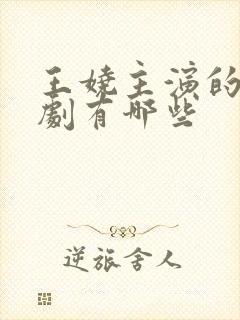 王娆主演的
劇有哪些
逆旅舍人